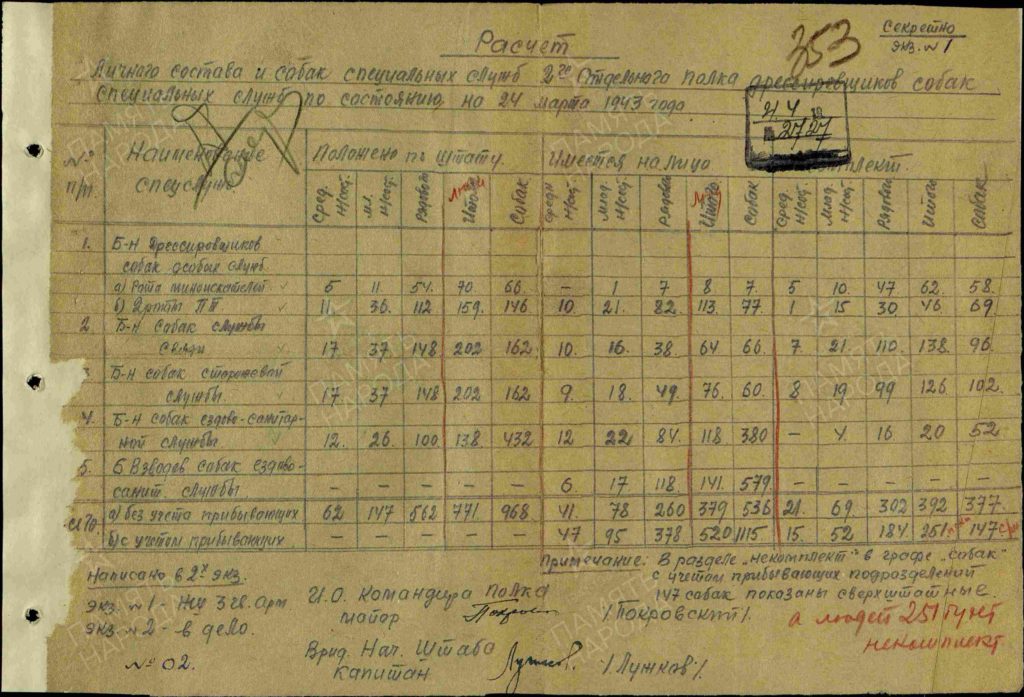 353
Секретно
экз. №1
Расчет
Личного состава и собак специальных служб 2го Отдельного полка дрессировщиков собак
специальных служб по состоянию на 24 марта 1943 года
2727
№ п/п. Наименование спецслужб Положено по штату Имеется на лицо комплект
Сред. н/сост. мл. н/сост. Рядовой Люди Итого Собак Средн н/сост. Млад. н/сост. Рядов. Итого Собак Сред. н/сост. Млад. н/сост. Рядовы Итого Собак
1. Б-н Дрессировщиков
собак особых служб
а) Рота миноискателей 5 11 54 70 66 – 1 7 8 7 5 10 47 62 58
б) 2 роты ПТ 11 36 112 159 146 10 21 82 113 77 1 15 30 46 69
2 Б-н собак службы
связи 17 37 148 202 162 10 16 38 64 66 7 21 110 138 96
3 Б-н собак сторожевой
службы 17 37 148 202 162 9 18 49 76 60 8 19 99 126 102
4. Б-н собак ездово-санитар-
ной службы 12 26 100 138 432 12 22 84 118 380 – 4 16 20 52
5. 6 Взводов собак ездово-
санит. службы – – – – – 6 17 118 141 579 – – – – –
а) без учета прибывающих 62 147 562 771 968 41 78 260 379 536 21 69 302 392 377
б) с учетом прибывающих – – – – – 47 95 378 520 1115 15 52 184 251 147
Примечание: В разделе „некомплект" в графе „собак"
с учетом прибывающих подразделений
147 собак показаны сверхштатные.
а людей 251
некомплект
Написано в 2х экз.
экз. №1 – 3 гв. Арм
экз. №2 – в дело.
№ 02.
И.О. Командира Полка
майор Покровск /Покровский/.
Врид. Нач. Штаба
Капитан Лужков. /Лужков/.
ПАМЯТЬ НАРОДА